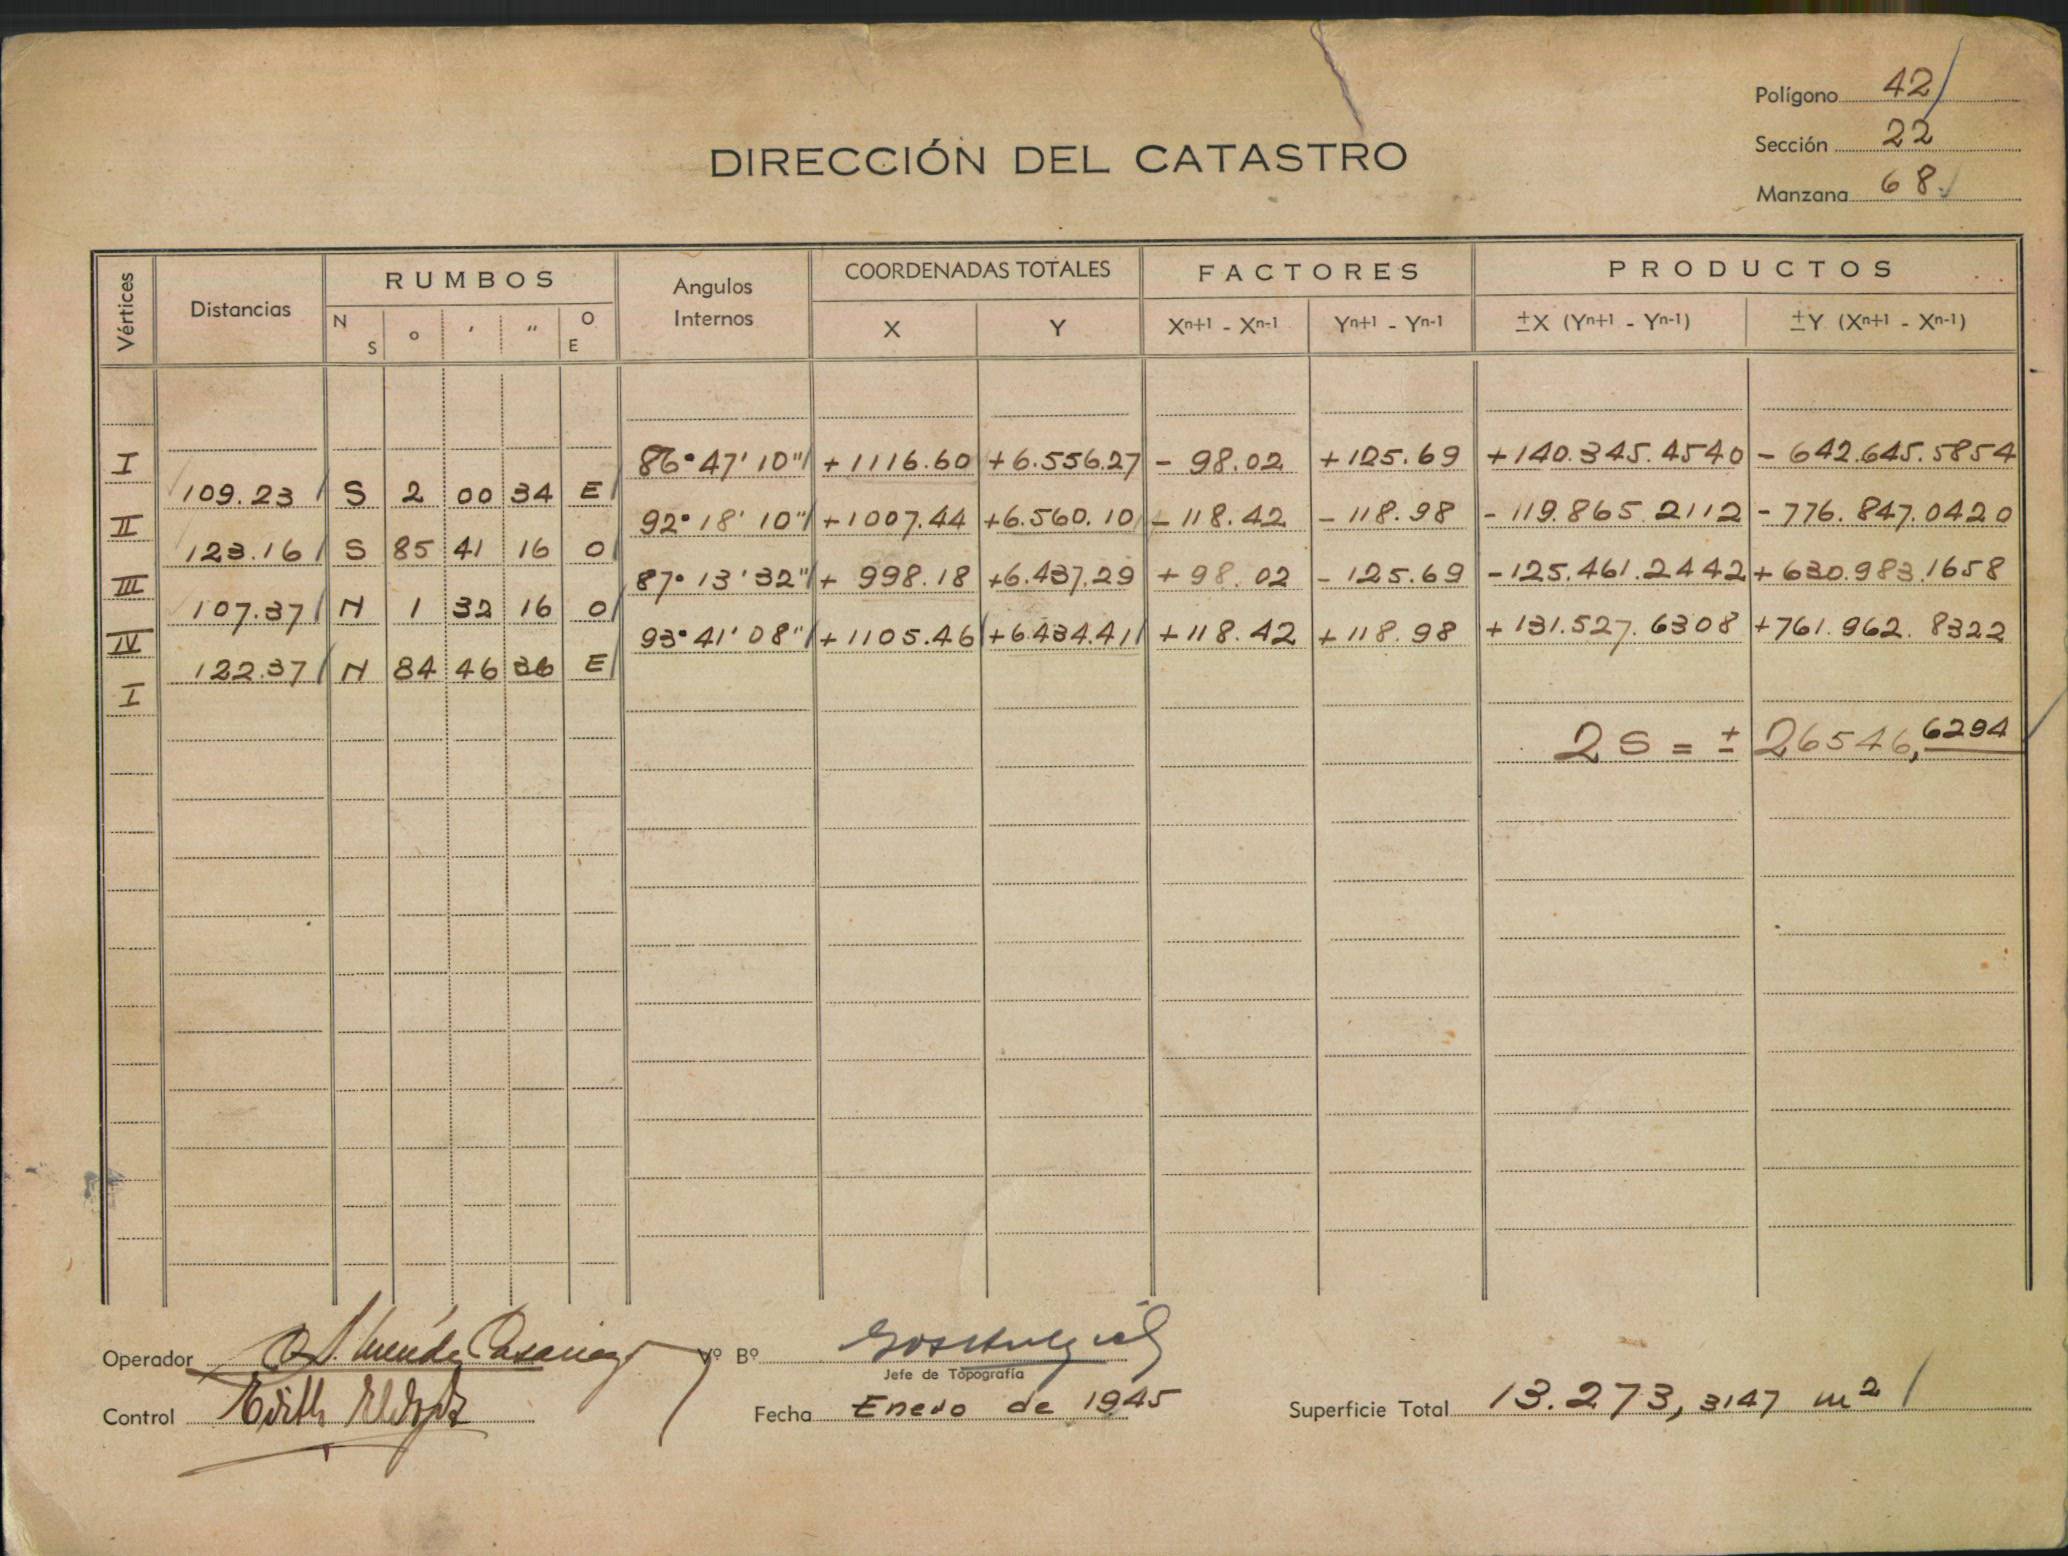 Polígono 42
Sección 22
Manzana 68
DIRECCIÓN DEL CATASTRO
Vértices Distancias RUMBOS Angulos Internos COORDENADAS TOTALES FACTORES PRODUCTOS
N S o ′ ″ O E X Y Xn+1 - Xn-1 Yn+1 - Yn-1 ±X (Yn+1 - Yn-1) ±Y (Xn+1 - Xn-1)
I 86° 47' 10" +1116.60 +6.556.27 - 98.02 +125.69 +140.345.4540 - 642.645.5854
109.23 S 2 00 34 E
II 92° 18' 10" +1007.44 +6.560.10 - 118.42 - 118.98 - 119.865.2112 - 776.847.0420
123.16 S 85 41 16 O
III 87° 13' 32" + 998.18 +6.437.29 + 98.02 - 125.69 - 125.461.2442 + 630.983.1658
107.37 N 1 32 16 O
IV 93° 41' 08" + 1105.46 +6.434.41 + 118.42 + 118.98 + 131.527.6308 +761.962.8322
122.37 N 84 46 36 E
I
2 S = ± 26546,6294
Operador Vº Bº
Jefe de Topografía
Control Edith Fecha Enero de 1945 Superficie Total 13.273,3147 m²